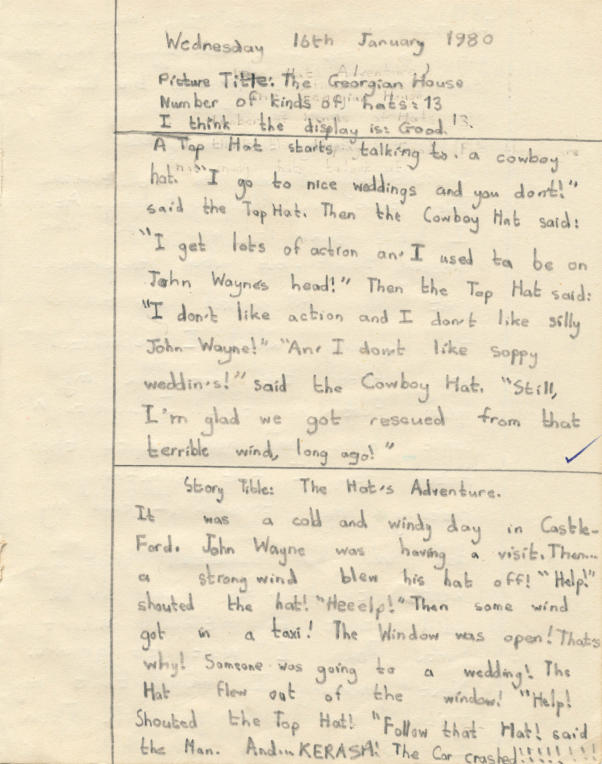 Wednesday 16th January 1980
Picture Title: The Georgian House
Number of kinds of hats: 13
I think the display is: Good. 13.
A Top Hat starts talking to. a cowboy
hat. "I go to nice weddings and you dont!"
said the Top Hat. Then the Cowboy Hat said:
"I get lots of action an' I used ta be on
John Waynes head!" Then the Top Hat said:
"I don't like action and I don't like silly
John Wayne!" "An' I don't like soppy
weddin's!" said the Cowboy Hat. "Still,
I'm glad we got rescued from that
terrible wind, long ago!"
Story Title: The Hat's Adventure.
It was a cold and windy day in Castle-
Ford. John Wayne was having a visit. Then...
a strong wind blew his hat off! "Help!"
shouted the hat! "Heeelp!" Then some wind
got in a taxi! The Window was open! Thats
why! Someone was going to a wedding! The
Hat flew out of the window! "Help!
Shouted the Top Hat! "Follow that Hat! said
the Man. And... KERASH! The Car crashed!!!!!!!!